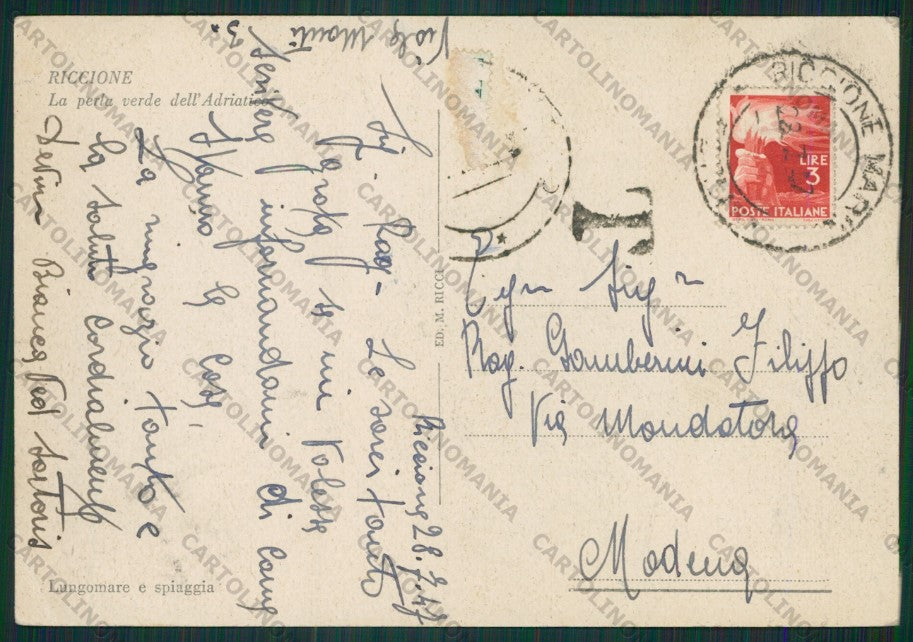 RICCIONE
La perla verde dell'Adriatico
Riccione 28.7.47
Sig. Rag. Le sarei tanto
grata se mi volesse
scrivere informandomi di come
stanno le cose,
La ringrazio tanto e
la saluto cordialmente
Bianca Dal
Viale Monti 3.
Lungomare e spiaggia
ED. M. RICCI
T
RICCIONE MARINA
LIRE
3
POSTE ITALIANE
Egr. Sig.
Rag. Gamberini Filippo
Via Mondatora
Modena
CARTOLINOMANIA